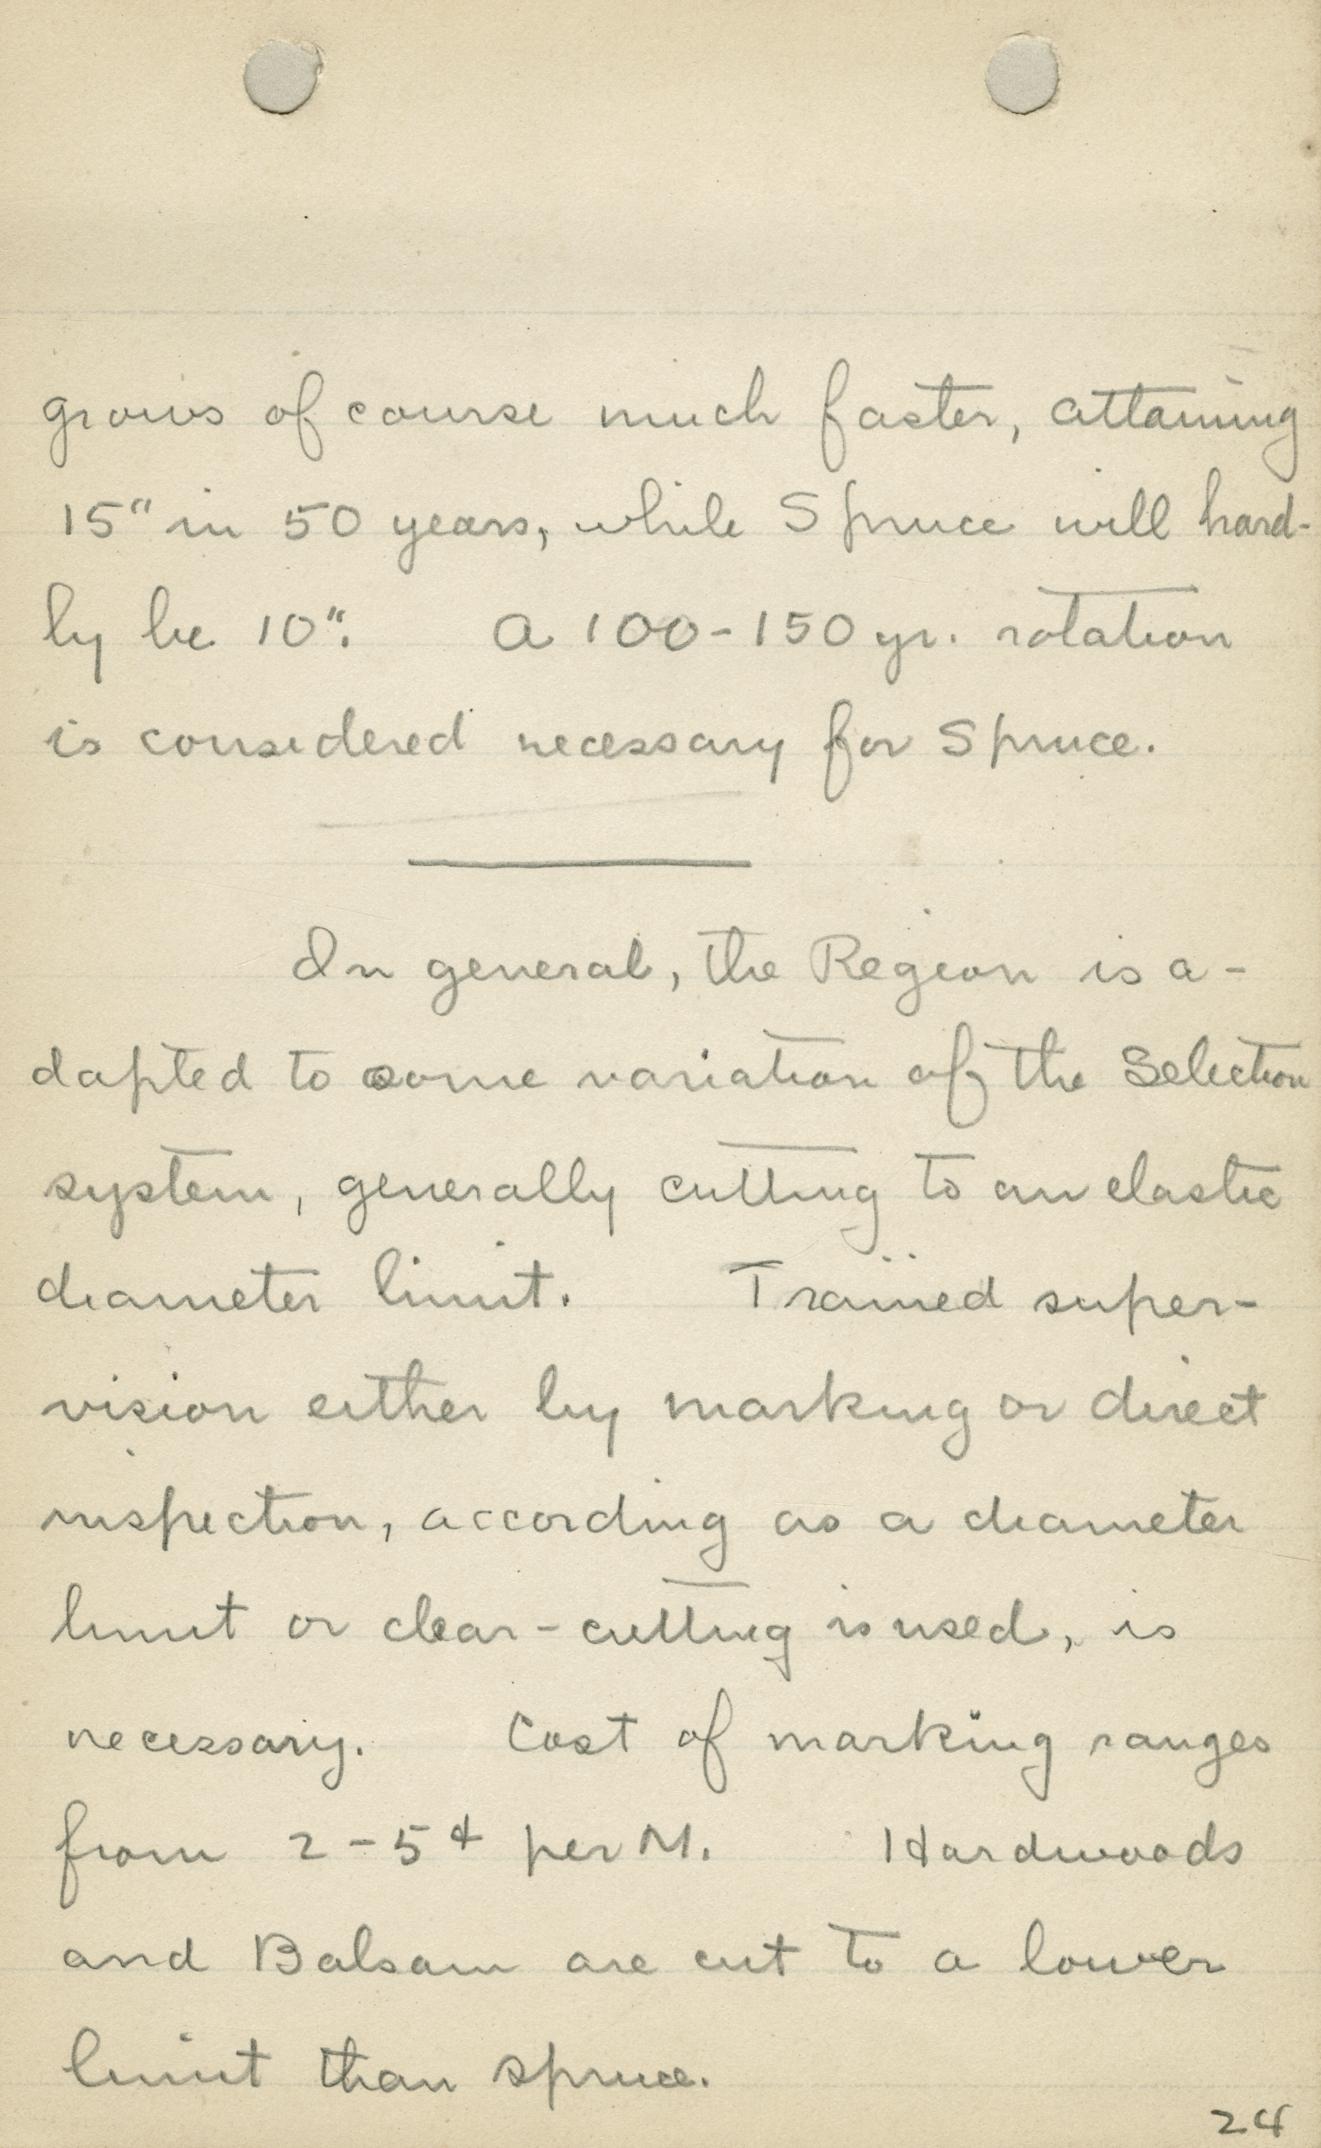 grows of course much faster, attaining
15" in 50 years, while Spruce will hard-
ly be 10". A 100-150 yr. rotation
is considered necessary for Spruce.
In general, the Region is a-
dapted to some variation of the Selection
system, generally cutting to an elastic
diameter limit. Trained super-
vision either by marking or direct
inspection, according as a diameter
limit or clear-cutting is used, is
necessary. Cost of marking ranges
from 2-5¢ per M. Hardwoods
and Balsam are cut to a lower
limit than spruce.
24